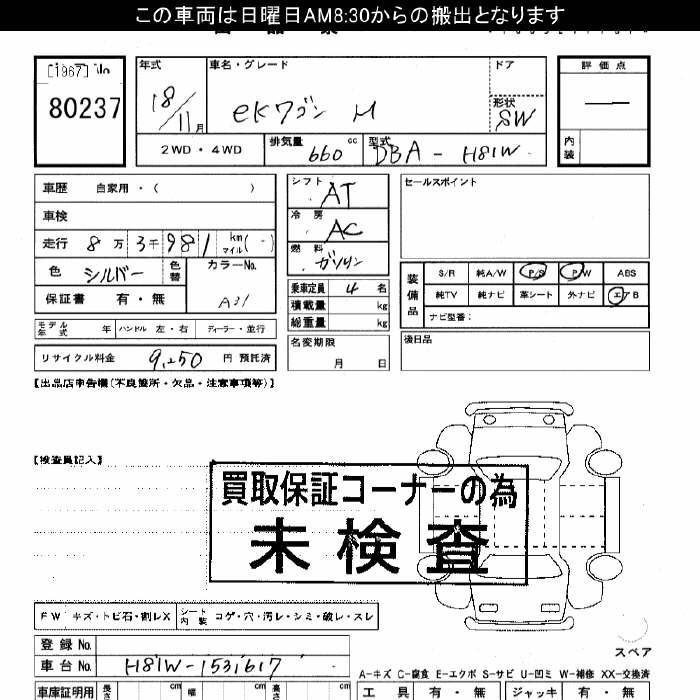 この車両は日曜日AM8:30からの搬出となります
[1967] No
80237
年式
18/11月
車名・グレード
eKワゴン M
ドア
形状
SW
評価点
—
内装
2WD・4WD
排気量
660 cc
型式
DBA - H81W
車歴 自家用・( )
車検
走行 8万3千981 km マイル(-)
色 シルバー 色替
カラーNo.
A31
保証書 有・無
シフト
AT
冷房
AC
燃料
ガソリン
乗車定員 4 名
積載量 kg
総重量 kg
セールスポイント
装備品
S/R 純A/W P/S P/W ABS
純TV 純ナビ 革シート 外ナビ エアB
ナビ型番:
モデル年式 年 ハンドル 左・右 ディーラー・並行
リサイクル料金 9,250 円 預託済
名変期限
月 日
後日品
【出品店申告欄(不良箇所・欠品・注意事項等)】
【検査員記入】
買取保証コーナーの為
未検査
FW キズ・トビ石・割レX シート内装 コゲ・穴・汚レ・シミ・破レ・スレ
登録No.
車台No. H81W-1531617
スペア
A-キズ C-腐食 E-エクボ S-サビ U-凹ミ W-補修 XX-交換済
車庫証明用 長さ cm 幅 cm 高さ cm
工具 有・無 ジャッキ 有・無